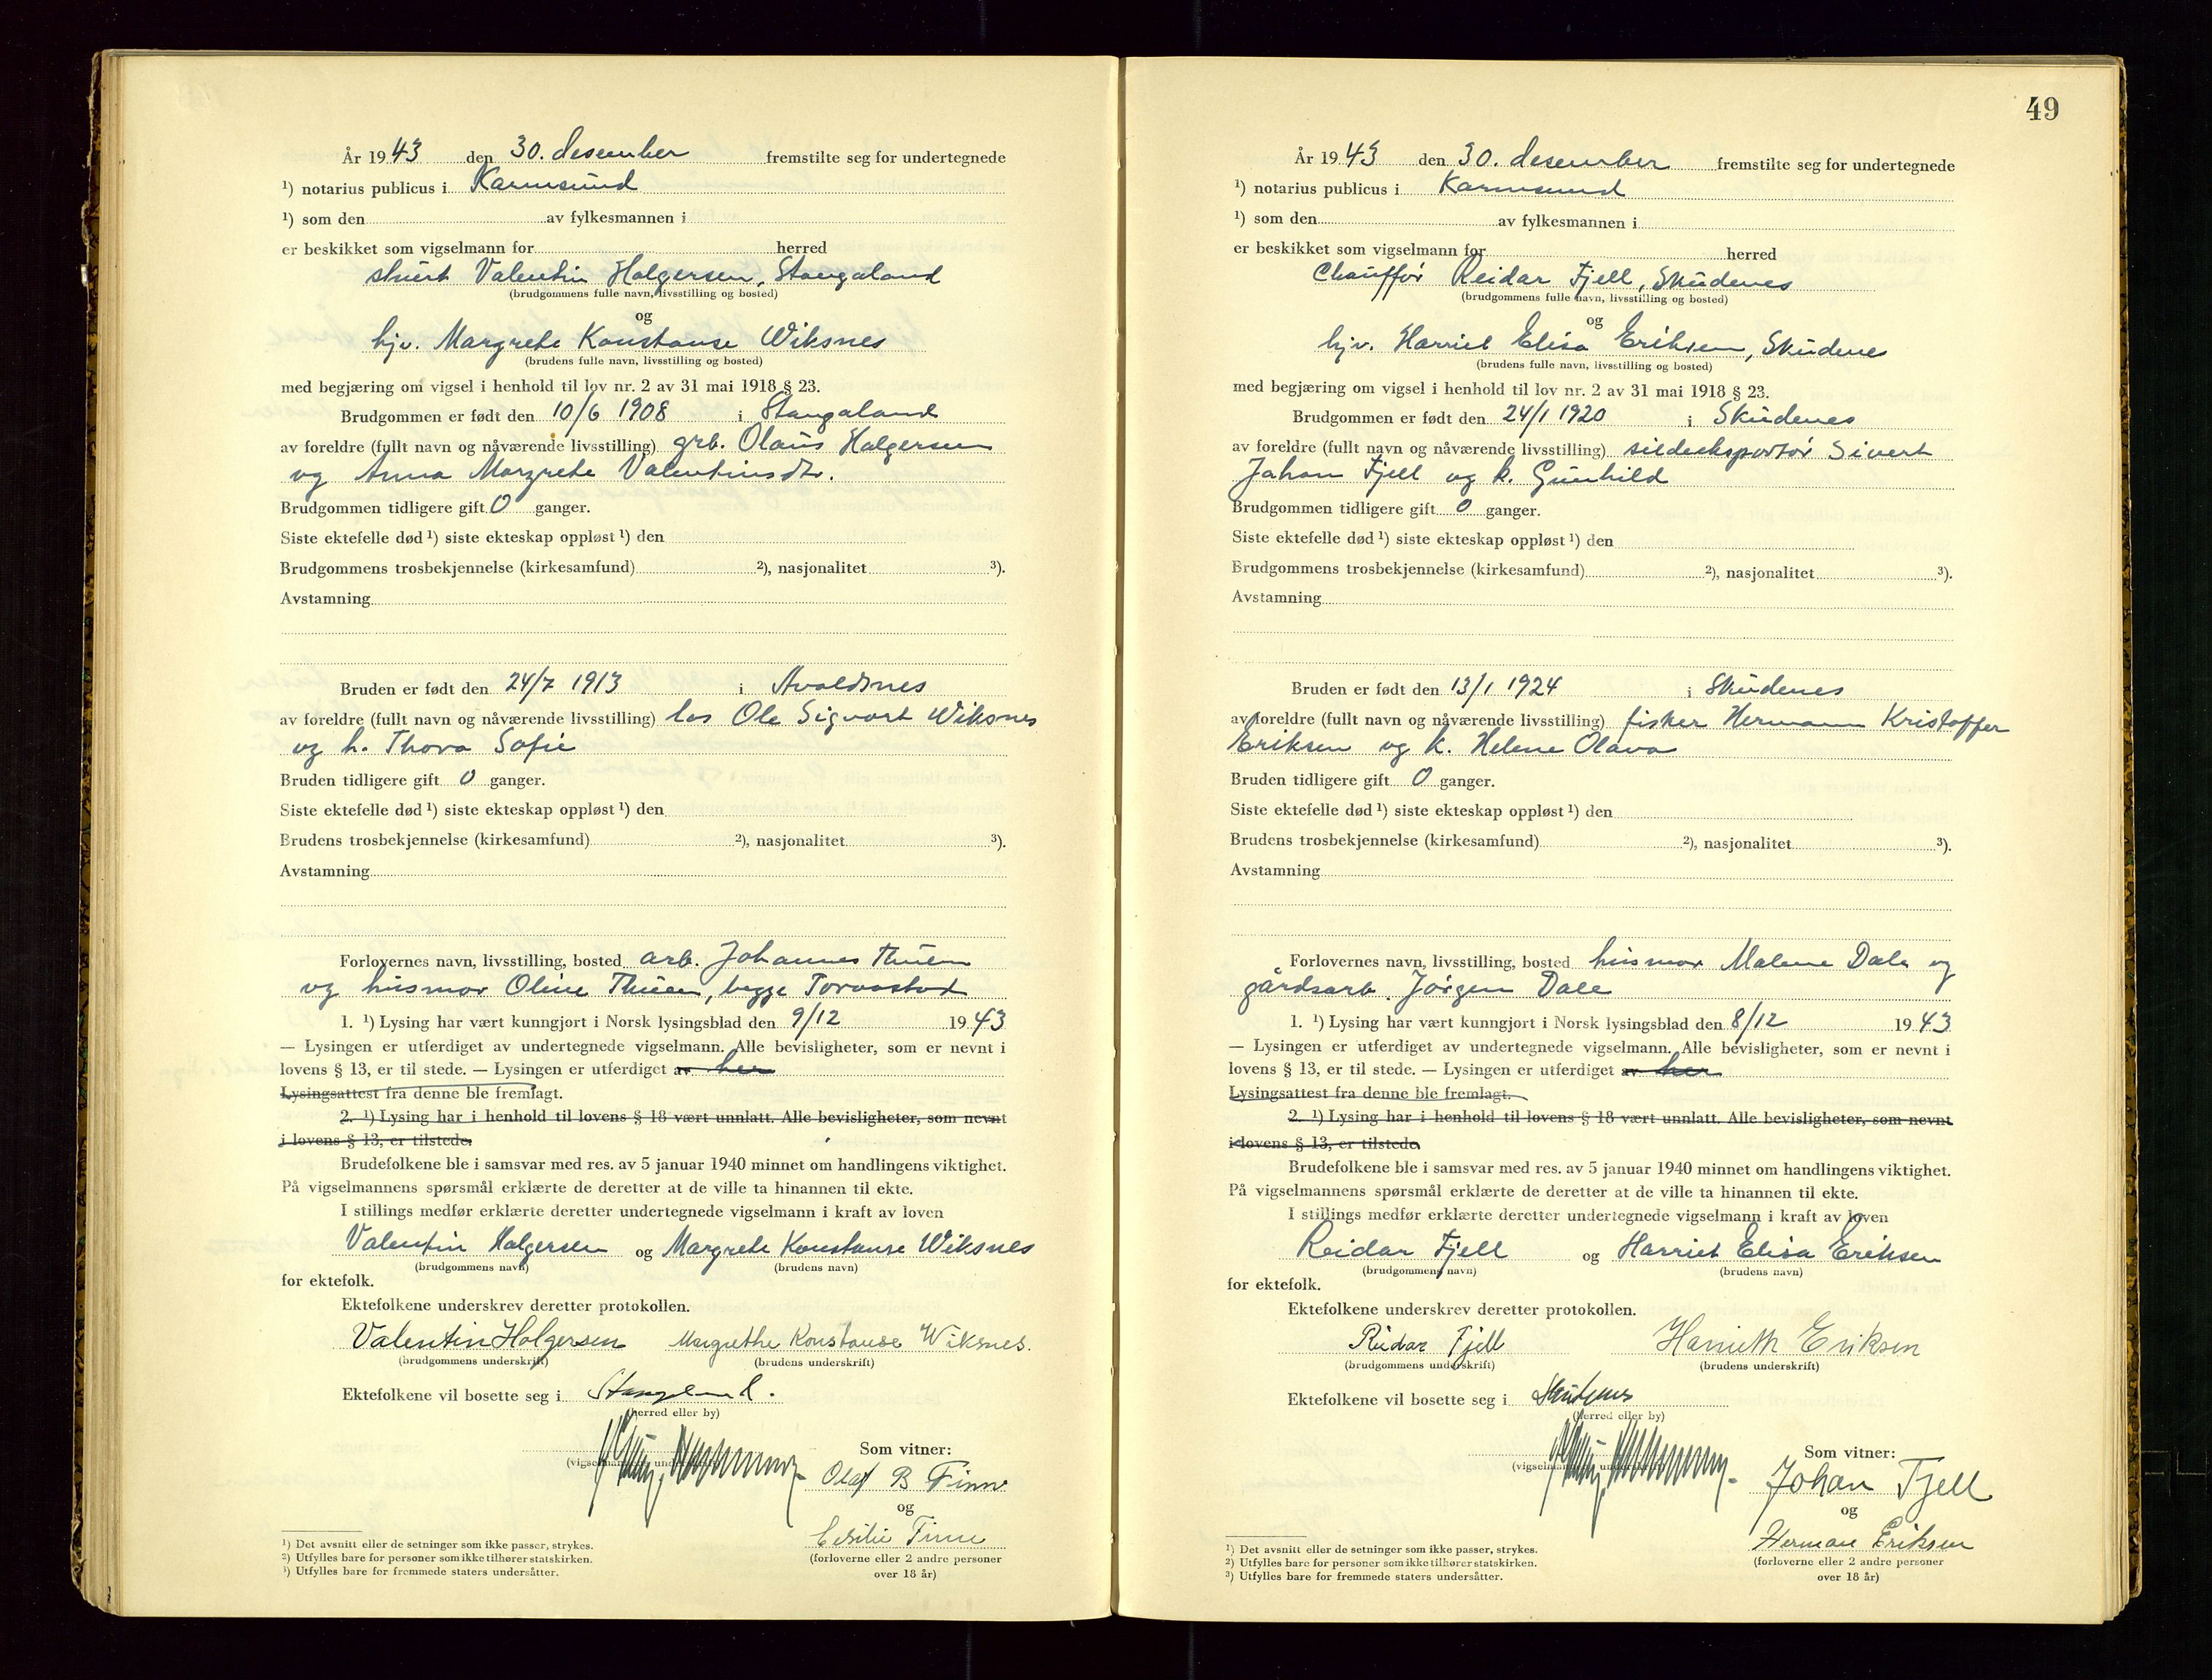 År 1943 den 30. desember fremstilte seg for undertegnede
¹) notarius publicus i Karmsund
¹) som den av fylkesmannen i
er beskikket som vigselmann for herred
stuert Valentin Holgersen, Stangaland
(brudgommens fulle navn, livsstilling og bosted)
og
hjv. Margrete Konstanse Wiksnes
(brudens fulle navn, livsstilling og bosted)
med begjæring om vigsel i henhold til lov nr. 2 av 31 mai 1918 § 23.
Brudgommen er født den 10/6 1908 i Stangaland
av foreldre (fullt navn og nåværende livsstilling) grb. Olaus Holgersen
og Anna Margrete Valentinsdtr.
Brudgommen tidligere gift 0 ganger.
Siste ektefelle død ¹) siste ekteskap oppløst ¹) den
Brudgommens trosbekjennelse (kirkesamfund) ²), nasjonalitet ³).
Avstamning
Bruden er født den 24/7 1913 i Avaldsnes
av foreldre (fullt navn og nåværende livsstilling) los Ole Sigvart Wiksnes
og h. Thora Sofie
Bruden tidligere gift 0 ganger.
Siste ektefelle død ¹) siste ekteskap oppløst ¹) den
Brudens trosbekjennelse (kirkesamfund) ²), nasjonalitet ³).
Avstamning
Forlovernes navn, livsstilling, bosted arb. Johannes Thuen
og husmor Oline Thuen, begge Torvastad
1. ¹) Lysing har vært kunngjort i Norsk lysingsblad den 9/12 1943
— Lysingen er utferdiget av undertegnede vigselmann. Alle bevisligheter, som er nevnt i
lovens § 13, er til stede. — Lysingen er utferdiget av her
Lysingsattest fra denne ble fremlagt.
2. ¹) Lysing har i henhold til lovens § 18 vært unnlatt. Alle bevisligheter, som nevnt
i lovens § 13, er tilstede.
Brudefolkene ble i samsvar med res. av 5 januar 1940 minnet om handlingens viktighet.
På vigselmannens spørsmål erklærte de deretter at de ville ta hinannen til ekte.
I stillings medfør erklærte deretter undertegnede vigselmann i kraft av loven
Valentin Holgersen og Margrete Konstanse Wiksnes
(brudgommens navn) (brudens navn)
for ektefolk.
Ektefolkene underskrev deretter protokollen.
Valentin Holgersen Margrethe Konstanse Wiksnes.
(brudgommens underskrift) (brudens underskrift)
Ektefolkene vil bosette seg i Stangeland.
(herred eller by)
Som vitner:
Olaf B Finne
og
Cesilie Finne
(forloverne eller 2 andre personer
over 18 år)
¹) Det avsnitt eller de setninger som ikke passer, strykes.
²) Utfylles bare for personer som ikke tilhører statskirken.
³) Utfylles bare for fremmede staters undersåtter.
49
År 1943 den 30. desember fremstilte seg for undertegnede
¹) notarius publicus i Karmsund
¹) som den av fylkesmannen i
er beskikket som vigselmann for herred
Chauffør Reidar Fjell, Skudenes
(brudgommens fulle navn, livsstilling og bosted)
og
hjv. Harriet Elisa Eriksen, Skudenes
(brudens fulle navn, livsstilling og bosted)
med begjæring om vigsel i henhold til lov nr. 2 av 31 mai 1918 § 23.
Brudgommen er født den 24/1 1920 i Skudenes
av foreldre (fullt navn og nåværende livsstilling) sildeeksportør Sivert
Johan Fjell og k. Gunhild
Brudgommen tidligere gift 0 ganger.
Siste ektefelle død ¹) siste ekteskap oppløst ¹) den
Brudgommens trosbekjennelse (kirkesamfund) ²), nasjonalitet ³).
Avstamning
Bruden er født den 13/1 1924 i Skudenes
av foreldre (fullt navn og nåværende livsstilling) fisker Hermann Kristoffer
Eriksen og k. Helene Olava
Bruden tidligere gift 0 ganger.
Siste ektefelle død ¹) siste ekteskap oppløst ¹) den
Brudens trosbekjennelse (kirkesamfund) ²), nasjonalitet ³).
Avstamning
Forlovernes navn, livsstilling, bosted husmor Malene Dale og
gårdsarb. Jørgen Dale
1. ¹) Lysing har vært kunngjort i Norsk lysingsblad den 8/12 1943
— Lysingen er utferdiget av undertegnede vigselmann. Alle bevisligheter, som er nevnt i
lovens § 13, er til stede. — Lysingen er utferdiget av her
Lysingsattest fra denne ble fremlagt.
2. ¹) Lysing har i henhold til lovens § 18 vært unnlatt. Alle bevisligheter, som nevnt
i lovens § 13, er tilstede.
Brudefolkene ble i samsvar med res. av 5 januar 1940 minnet om handlingens viktighet.
På vigselmannens spørsmål erklærte de deretter at de ville ta hinannen til ekte.
I stillings medfør erklærte deretter undertegnede vigselmann i kraft av loven
Reidar Fjell og Harriet Elisa Eriksen
(brudgommens navn) (brudens navn)
for ektefolk.
Ektefolkene underskrev deretter protokollen.
Reidar Fjell Harrieth Eriksen
(brudgommens underskrift) (brudens underskrift)
Ektefolkene vil bosette seg i Skudenes
(herred eller by)
Som vitner:
Johan Fjell
og
Herman Eriksen
(forloverne eller 2 andre personer
over 18 år)
¹) Det avsnitt eller de setninger som ikke passer, strykes.
²) Utfylles bare for personer som ikke tilhører statskirken.
³) Utfylles bare for fremmede staters undersåtter.